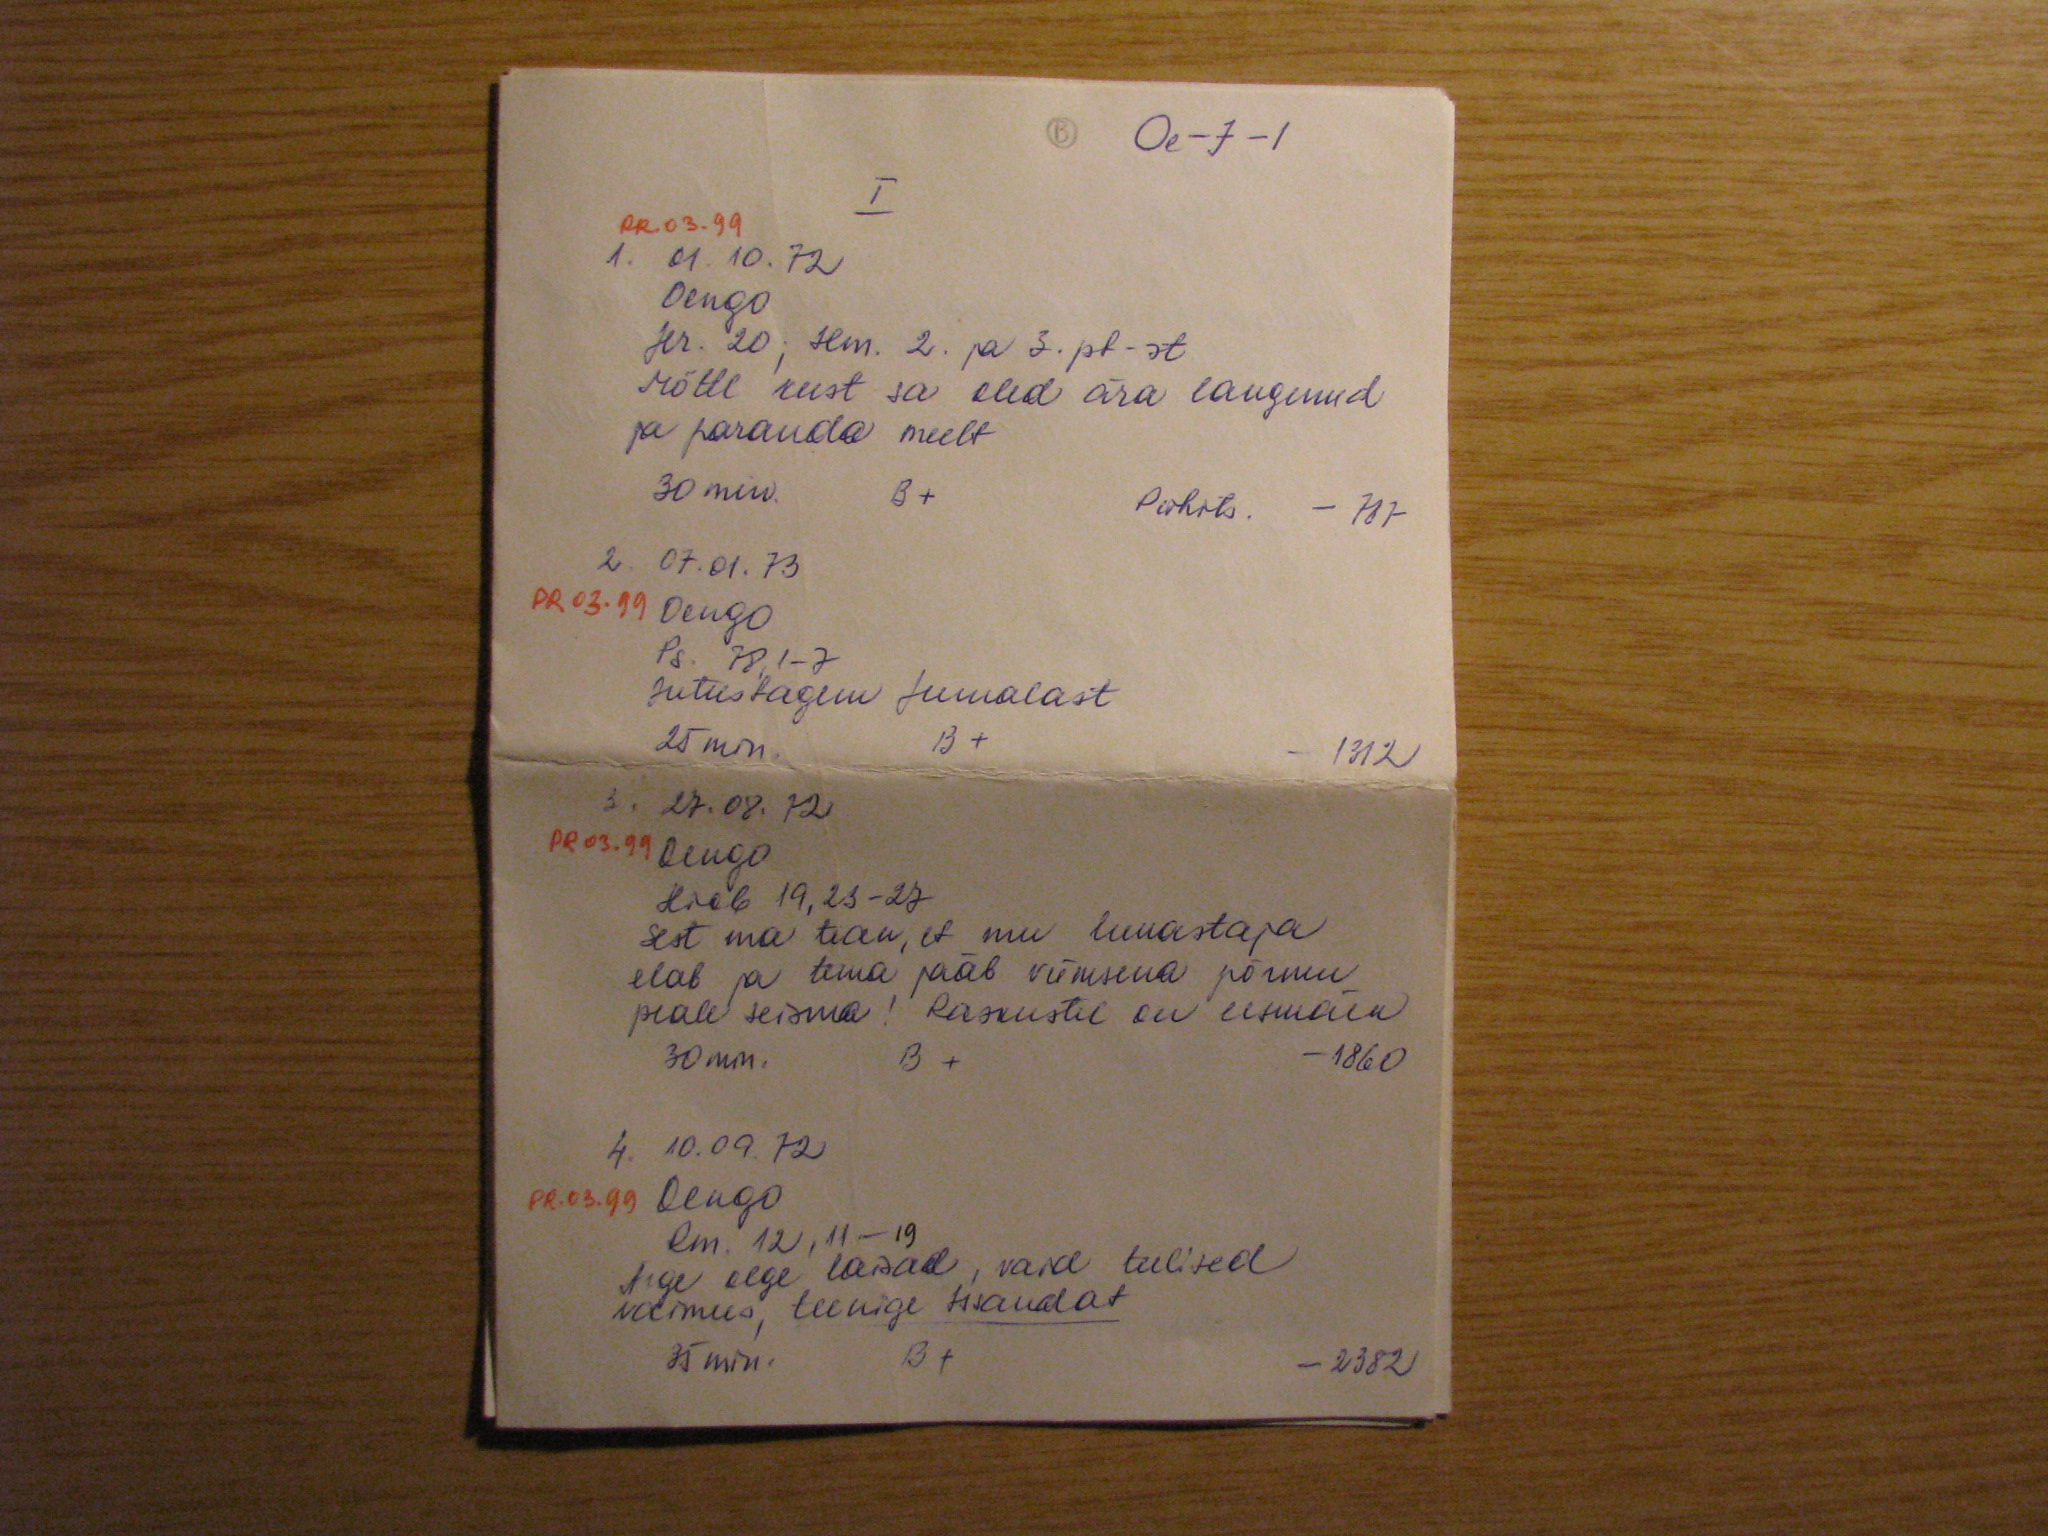 B Oe-7-1
I
PR.03.99
1. 01.10.72
Oengo
Jer. 20; Ilm. 2. ja 3. pt-st
Mõtle kust sa oled ära langenud
ja paranda meelt
30 min. B+ - 787
2. 07.01.73
PR 03.99 Oengo
Ps. 78,1-7
Jutustagem Jumalast
25 min. B+ - 1312
3. 27.08.72
PR 03.99 Oengo
Hiob 19,23-27
Sest ma tean, et mu lunastaja
elab ja tema jääb viimsena põrmu
peale seisma! Raskustel on eesmärk
30 min. B + -1860
4. 10.09.72
PR.03.99 Oengo
Rm. 12,11-19
Ärge olge laisad, vaid tulised
vaimus, teenige Issandat
35 min. B + - 2382